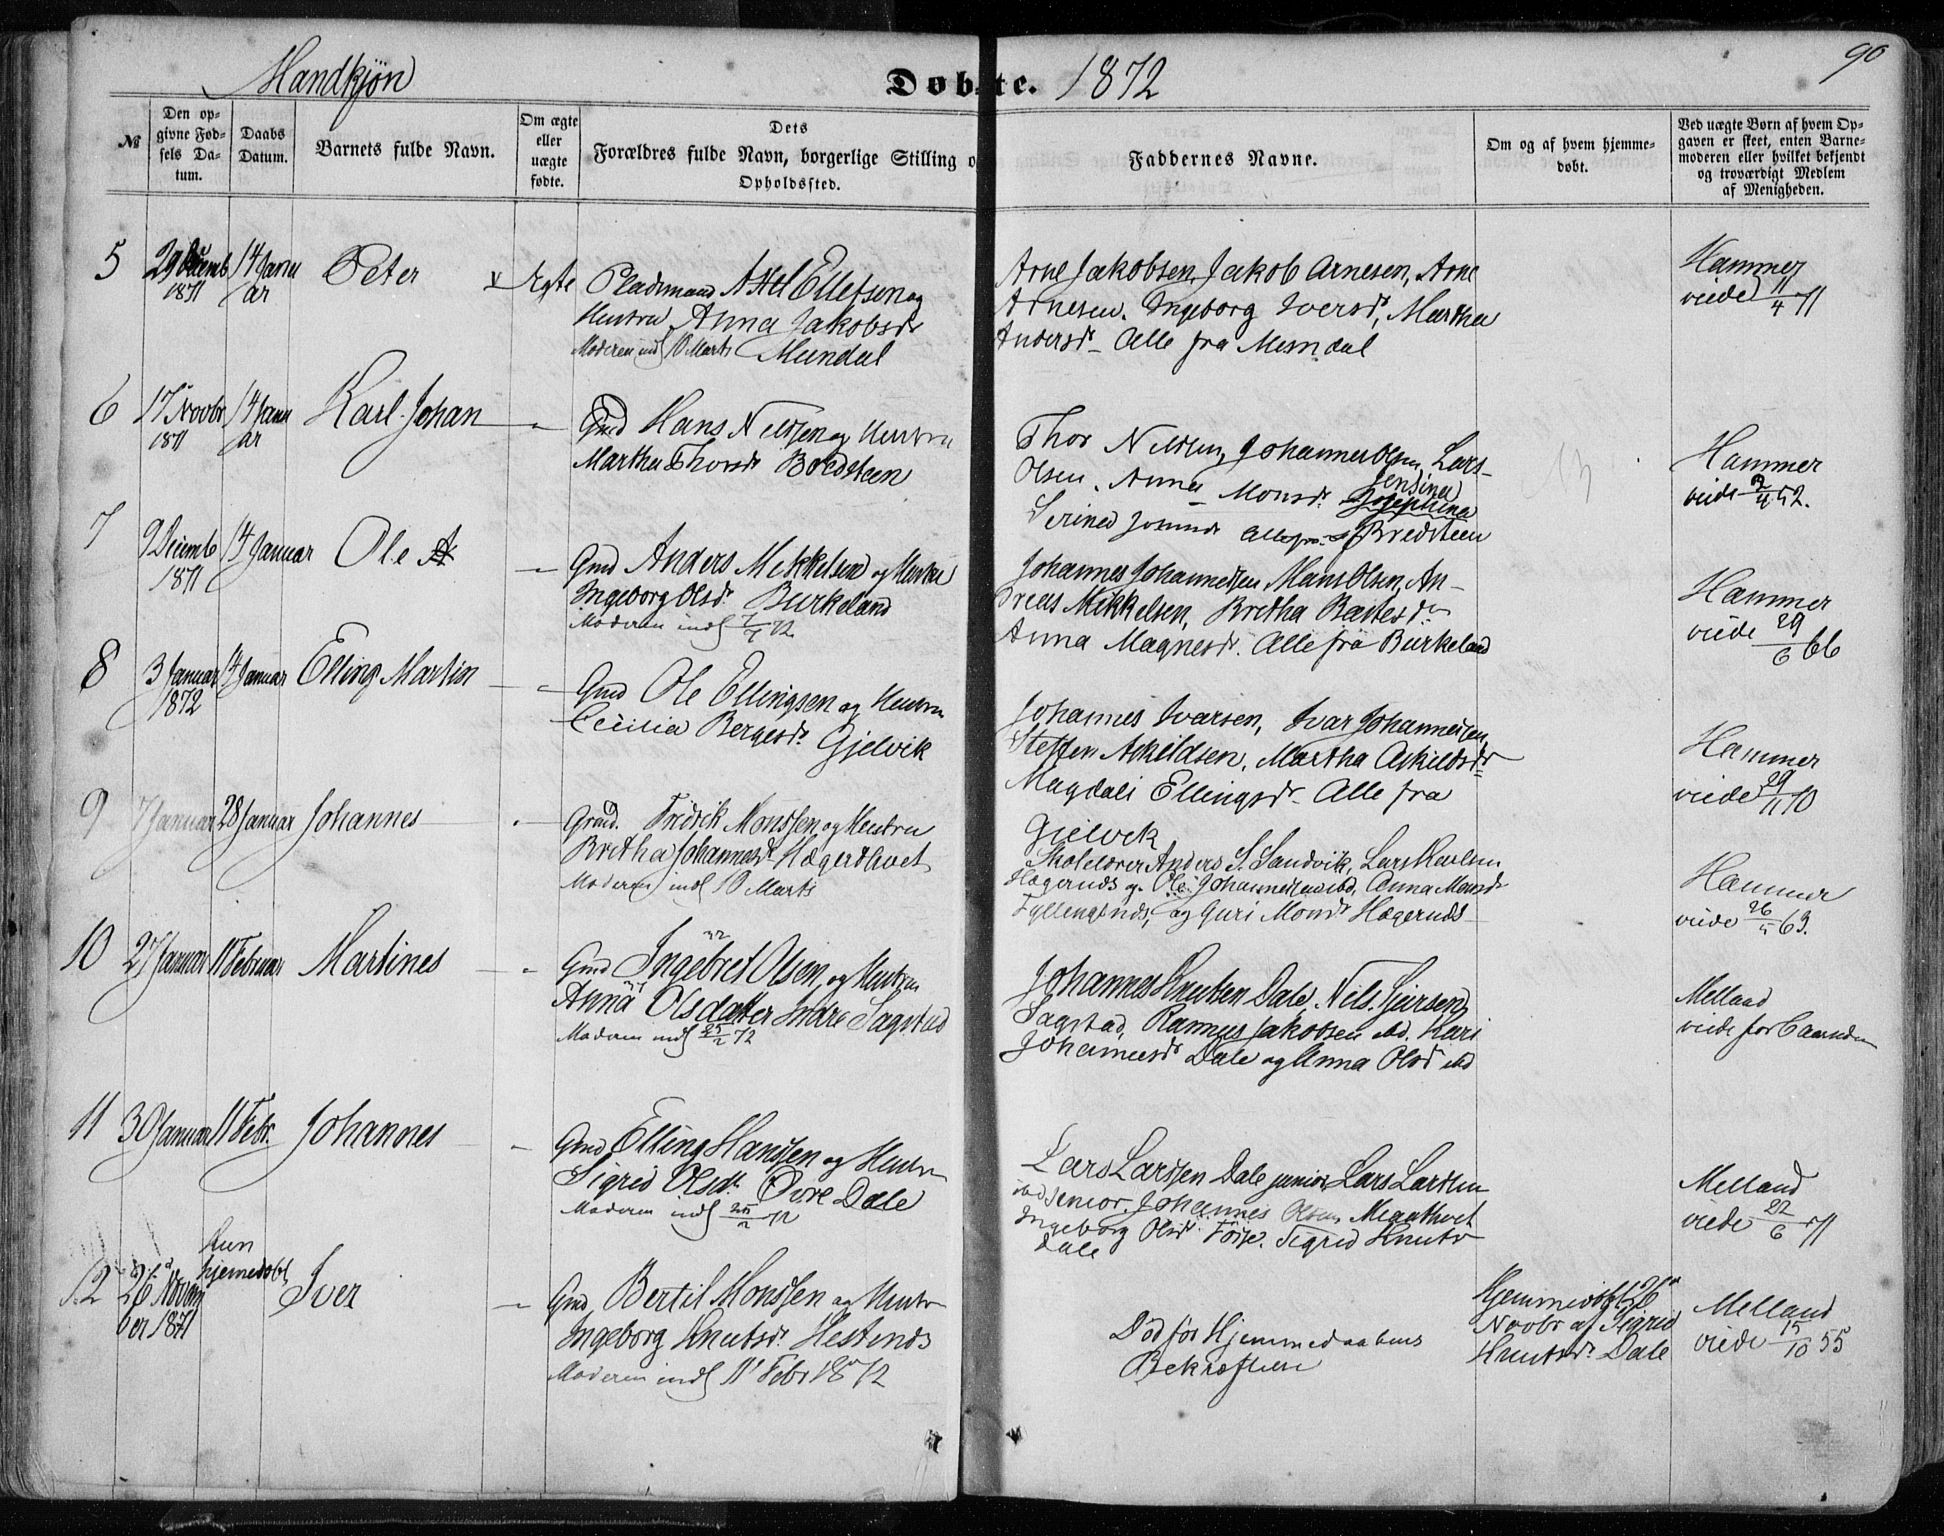 Mandkjøn
Døbte. 1872
90
№
Den opgivne Fødsels Datum.
Daabs Datum.
Barnets fulde Navn.
Om ægte eller uægte fødte.
Dets
Forældres fulde Navn, borgerlige Stilling o
Opholdssted.
Faddernes Navne.
Om og af hvem hjemmedøbt.
Ved uægte Børn af hvem Opgaven er skeet, enten Barnemoderen eller hvilket bekjendt og troværdigt Medlem af Menigheden.
5 29 Decemb 1871 14 Januar Peter Ægte
Pladsmand Axel Ellefsen og
Hustru Anna Jakobsdr
Moderen indl 10 Marts Mundal
Arne Jakobsen, Jakob Arnesen, Arne
Arnesen. Ingeborg Iversdr, Martha
Andersdr Alle fra Mundal
Hammer
viede 11/4 71
6 17 Novbr 1871 14 Januar Karl Johan
Gmd Hans Nilssen og Hustru
Martha Thorsdr Bredsteen
Thor Nilsen, Johannes Olsen, Lars
Olsen. Anna Monsdr. Jensine
Josephina
Serine alle fra Bredsteen
Hammer
viede 2/4 52.
7 9 Decemb 1871 14 Januar Ole A
Gmd Anders Mikkelsen og Hustru
Ingeborg Olsdr. Burkeland
Moderen indl 72
Johannes Johannessen, Mons Olsen, An-
dreas Mikkelsen, Bretha
Anna Magnesdr. Alle fra Burkeland
Hammer
viede 29/6 66
8 3 Januar 1872 14 Januar Elling Martin
Gmd Ole Ellingsen og Hustru
Cecilia Bergesdr. Gjelvik
Johannes Ivarsen, Ivar Johannessen
Steffen Askildsen, Martha Askildsdr
Magdali Ellingsdr Alle fra
Gjelvik
Hammer
viede 29/11 70
9 7 Januar 28 Januar Johannes
Grmd. Fredrik Monssen og Hustru
Bretha Johannesdr Hægerthvet
Moderen indl 10 Marts
Skolelærer Anders S. Sandvik, Lars Karlsen
Hægernds og Ole Johannessen ibd, Anna Monsdr
Fyllingsnds, og Guri Monsdr Hægernds
Hammer
viede 26/5 63.
10 27 Januar 11 Februar Martines
Gmd Ingebret Olsen og Hustru
Anna Olsdatter Indre Sagstad
Moderen indl 25/2 72
Johannes Knutsen Dale, Nils
Sagstad, Rasmus Jakobsen ibd. Kari
Johannesdr Dale og Anna Olsd ibd
Melland
viede for
11 30 Januar 11 Febr. Johannes
Gmd Elling Hanssen og Hustru
Sigrid Olsdr. Øvre Dale
Moderen indl 25/2 72
Lars Larssen Dale junior, Lars Larssen
ibd senior. Johannes Olsen
Ingeborg Olsdr. Sigrid Knutsdr
Dale
Melland
viede 22/6 71
12 26 Novem ber 1871 kun hjemmedøbt Iver
Gmd Bertil Monssen og Hustru
Ingeborg Knutsdr. Hestends
Moderen indl 11 Febr 1872
Død før Hjemmedaabens
Bekræftelse
Hjemmedøbt 26
Novbr af Sigrid
Knutsdr. Dale
Melland
viede 15/10 55